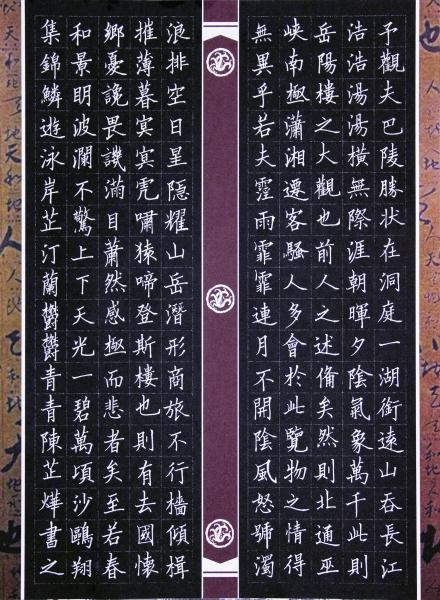 予觀夫巴陵勝状在洞庭一湖銜遠山吞長江
浩浩湯湯橫無際涯朝暉夕陰氣象萬千此則
岳陽樓之大觀也前人之述俻矣然則北通巫
峡南極瀟湘遷客騷人多會於此覽物之情得
無異乎若夫霪雨霏霏連月不開陰風怒號濁
浪排空日星隐耀山岳潛形商旅不行檣傾楫
摧薄暮冥冥虎嘯猿啼登斯樓也則有去國懷
鄉憂讒畏譏滿目蕭然感極而悲者矣至若春
和景明波瀾不驚上下天光一碧萬頃沙鷗翔
集錦鱗遊泳岸芷汀蘭鬱鬱青青陳芷燁書之